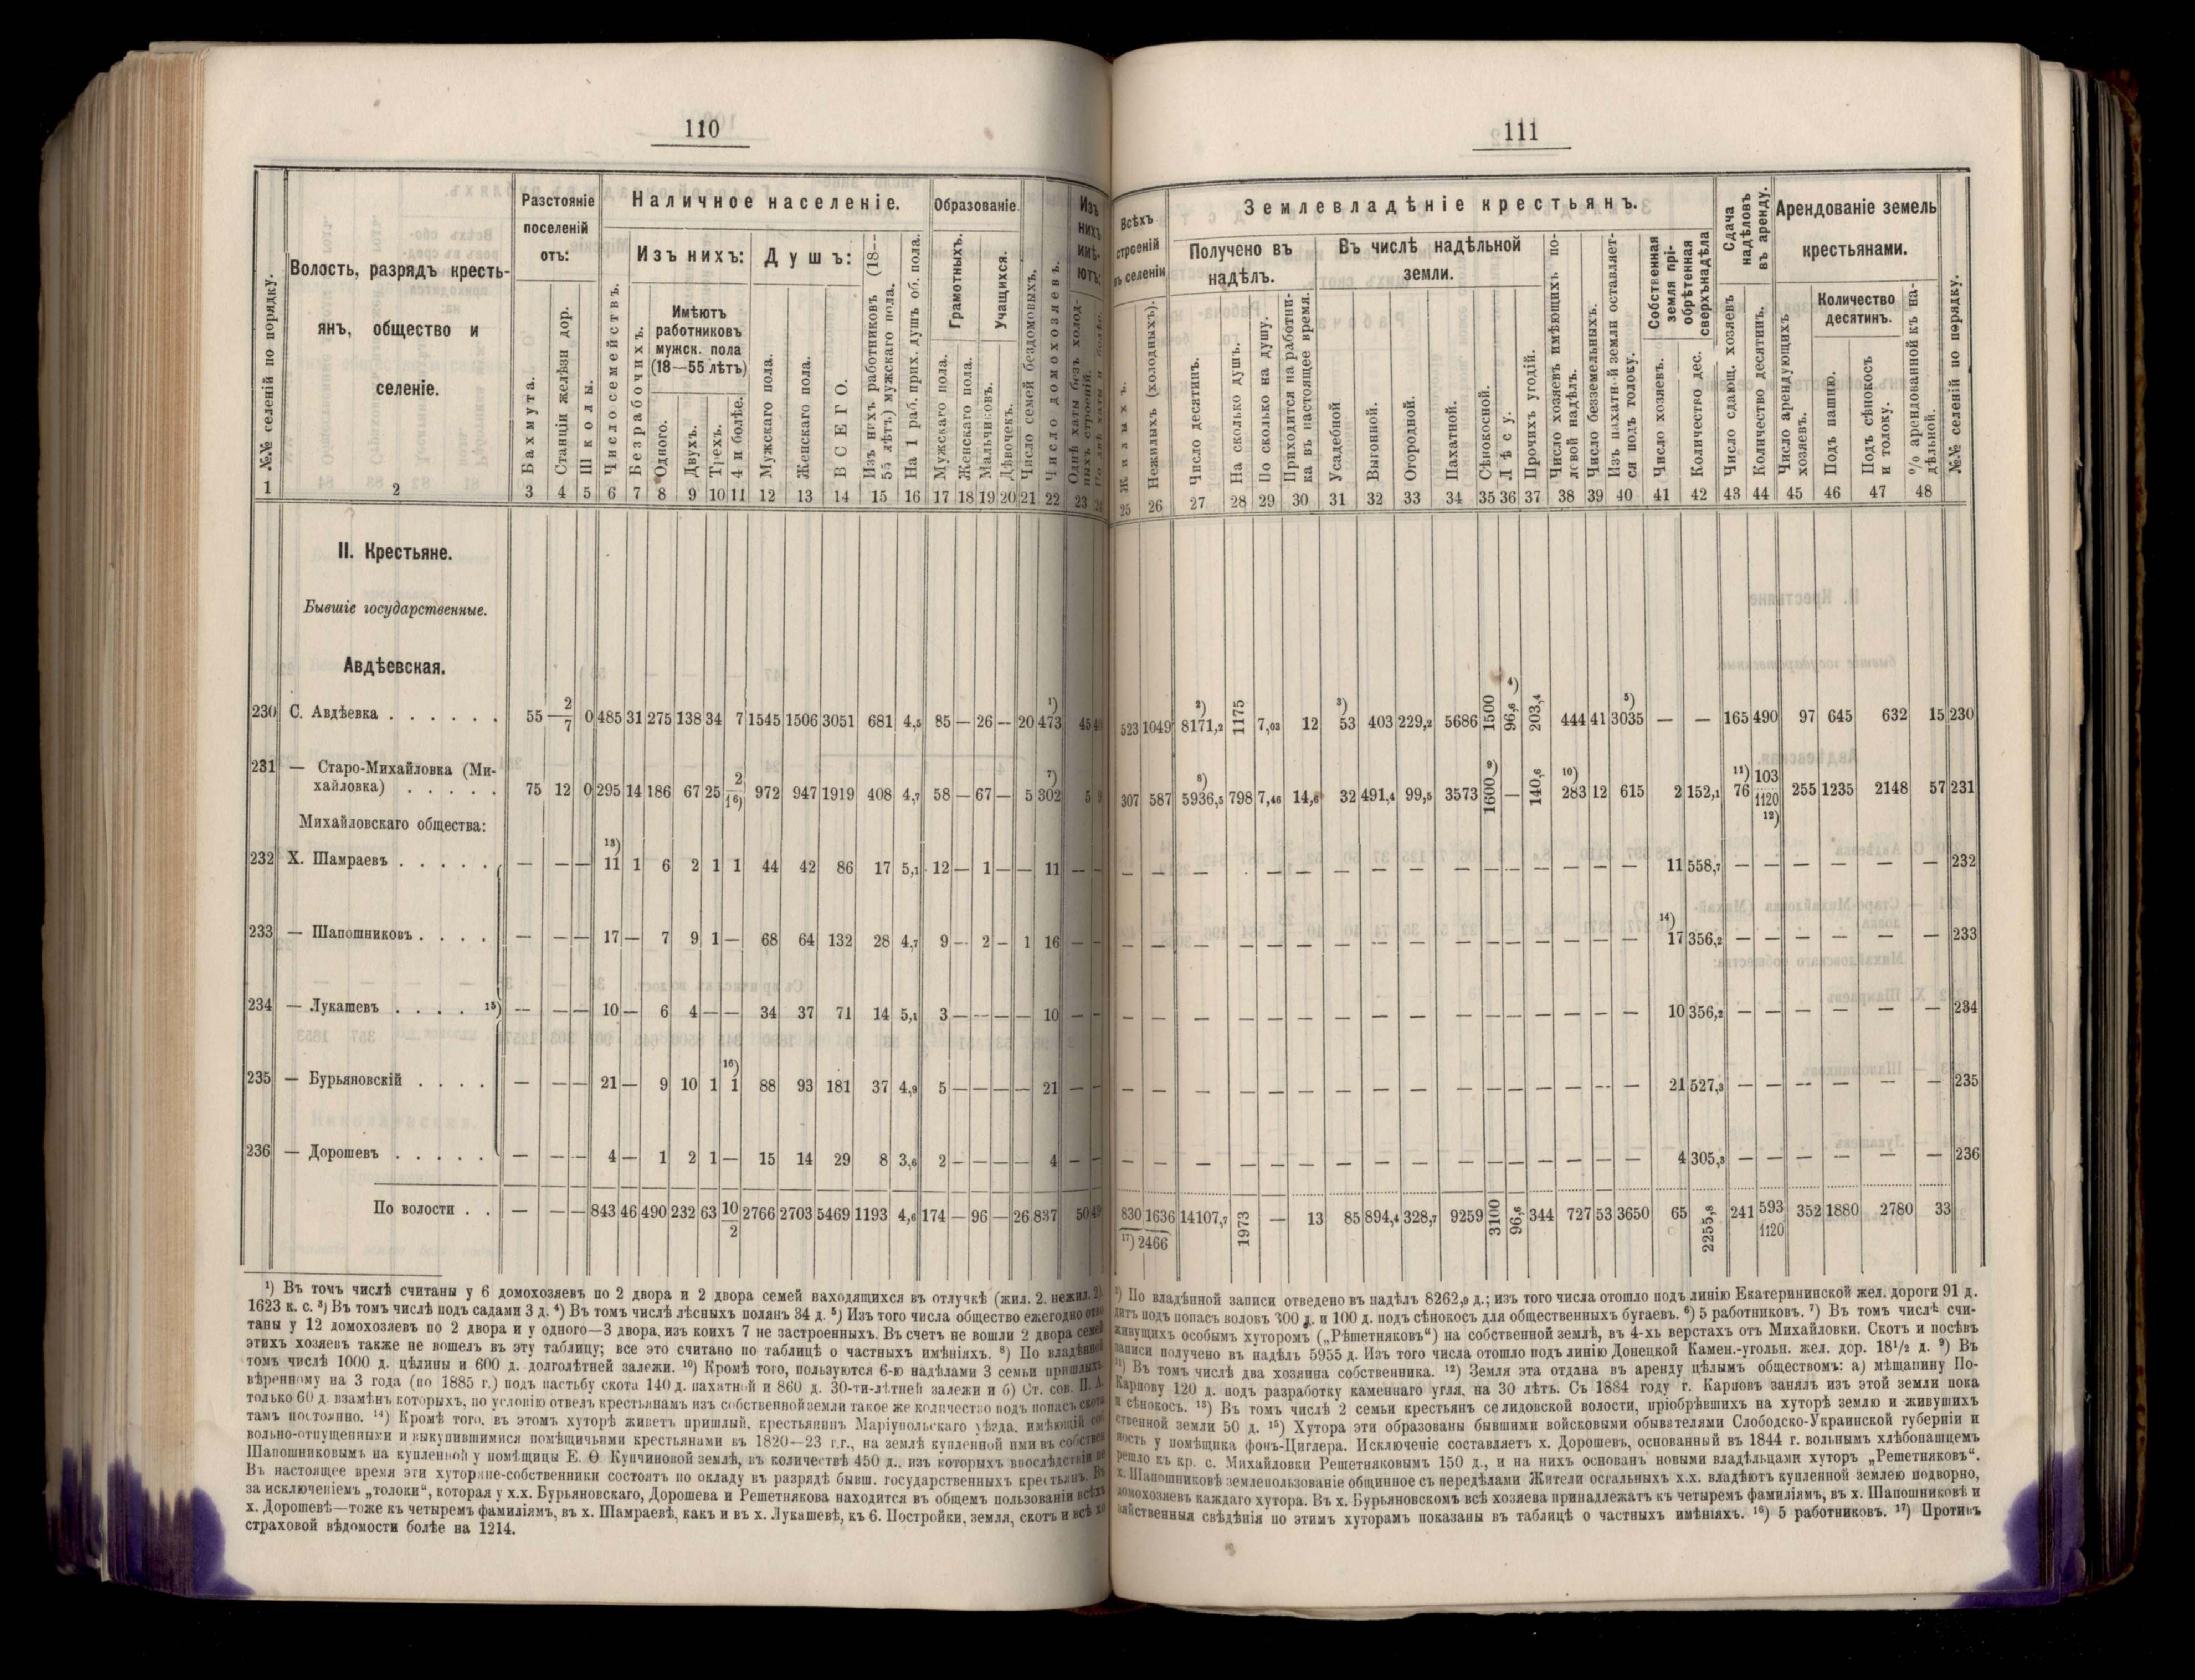 110
№№ селеній по порядку.
Волость, разрядъ кресть-
янъ, общество и
селеніе.
Разстояніе
поселеній
отъ:
Бахмута.
Станціи желѣзн дор.
Школы.
Наличное населеніе.
Число семействъ.
Изъ нихъ:
Безрабочихъ.
Имѣютъ
работниковъ
мужск. пола
(18—55 лѣтъ)
Одного.
Двухъ.
Трехъ.
4 и болѣе.
Душъ:
Мужскаго пола.
Женскаго пола.
ВСЕГО.
Изъ нихъ работниковъ (18—
55 лѣтъ) мужскаго пола.
На 1 раб. прих. душъ об. пола.
Образованіе.
Грамотныхъ.
Учащихся.
Мужскаго пола.
Женскаго пола.
Мальчиковъ.
Дѣвочекъ.
Число семей бездомовыхъ.
Число домохозяевъ.
Изъ
нихъ
имѣ-
ютъ:
Однѣ хаты безъ холод-
ныхъ строеній.
1 2 3 4 5 6 7 8 9 10 11 12 13 14 15 16 17 18 19 20 21 22 23
II. Крестьяне.
Бывшіе государственные.
Авдѣевская.
230 С. Авдѣевка . . . . . . 55 2/7 0 485 31 275 138 34 7 1545 1506 3051 681 4,5 85 — 26 — 20 ¹) 473 45
231 — Старо-Михайловка (Ми-
хайловка) . . . . . 75 12 0 295 14 186 67 25 2/1⁶) 972 947 1919 408 4,7 58 — 67 — 5 ⁷) 302 5 9
Михайловскаго общества:
232 Х. Шамраевъ . . . . . — — — ¹³) 11 1 6 2 1 1 44 42 86 17 5,1 12 — 1 — — 11 — —
233 — Шапошниковъ . . . . — — — 17 — 7 9 1 — 68 64 132 28 4,7 9 — 2 — 1 16 — —
234 — Лукашевъ . . . . ¹⁵) — — — 10 — 6 4 — — 34 37 71 14 5,1 3 — — — — 10 — —
235 — Бурьяновскій . . . . — — — 21 — 9 10 1 ¹⁶) 1 88 93 181 37 4,9 5 — — — — 21 — —
236 — Дорошевъ . . . . . — — — 4 — 1 2 1 — 15 14 29 8 3,6 2 — — — — 4 — —
По волости . . — — — 843 46 490 232 63 10/2 2766 2703 5469 1193 4,6 174 — 96 — 26 837 50
¹) Въ томъ числѣ считаны у 6 домохозяевъ по 2 двора и 2 двора семей находящихся въ отлучкѣ (жил. 2. нежил. 2).
1623 к. с. ³) Въ томъ числѣ подъ садами 3 д. ⁴) Въ томъ числѣ лѣсныхъ полянъ 34 д. ⁵) Изъ того числа общество ежегодно
таны у 12 домохозяевъ по 2 двора и у одного—3 двора, изъ коихъ 7 не застроенныхъ. Въ счетъ не вошли 2 двора семей
этихъ хозяевъ также не вошелъ въ эту таблицу; все это считано по таблицѣ о частныхъ имѣніяхъ. ⁸) По владѣнной
томъ числѣ 1000 д. цѣлины и 600 д. долголѣтней залежи. ¹⁰) Кромѣ того, пользуются 6-ю надѣлами 3 семьи пришлыхъ.
вѣренному на 3 года (по 1885 г.) подъ пастьбу скота 140 д. пахатной и 860 д. 30-ти-лѣтней залежи и б) Ст. сов. П. А.
только 60 д. взамѣнъ которыхъ, по условію отвелъ крестьянамъ изъ собственной земли такое же количество подъ попасъ скота
тамъ постоянно. ¹⁴) Кромѣ того. въ этомъ хуторѣ живетъ пришлый, крестьянинъ Маріупольскаго уѣзда. имѣющій соб
вольно-отпущенными и выкупившимися помѣщичьими крестьянами въ 1820—23 г.г., на землѣ купленной ими въ собствен
Шапошниковымъ на купленной у помѣщицы Е. Ѳ. Купчиновой землѣ, въ количествѣ 450 д.. изъ которыхъ впослѣдствіи пе
Въ настоящее время эти хуторяне-собственники состоятъ по окладу въ разрядѣ бывш. государственныхъ крестьянъ. Въ
за исключеніемъ „толоки“, которая у х.х. Бурьяновскаго, Дорошева и Решетнякова находится въ общемъ пользованіи всѣхъ
х. Дорошевѣ—тоже къ четыремъ фамиліямъ, въ х. Шамраевѣ, какъ и въ х. Лукашевѣ, къ 6. Постройки, земля, скотъ и всѣ хо
страховой вѣдомости болѣе на 1214.
111
Всѣхъ
строеній
въ селеніи
Жилыхъ.
Нежилыхъ (холодныхъ).
Землевладѣніе крестьянъ.
Получено въ
надѣлъ.
Число десятинъ.
На сколько душъ.
По сколько на душу.
Приходится на работни-
ка въ настоящее время.
Въ числѣ надѣльной
земли.
Усадебной
Выгонной.
Огородной.
Пахатной.
Сѣнокосной.
Лѣсу.
Прочихъ угодій.
Число хозяевъ имѣющихъ по-
левой надѣлъ.
Число безземельныхъ.
Изъ пахатн-й земли оставляет-
ся подъ толоку.
Собственная
земля прі-
обрѣтенная
сверхънадѣла
Число хозяевъ.
Количество дес.
Сдача
надѣловъ
въ аренду.
Число сдающ. хозяевъ
Количество десятинъ.
Арендованіе земель
крестьянами.
Число арендующихъ
хозяевъ.
Количество
десятинъ.
Подъ пашню.
Подъ сѣнокосъ
и толоку.
% арендованной къ на-
дѣльной.
№№ селеній по порядку.
25 26 27 28 29 30 31 32 33 34 35 36 37 38 39 40 41 42 43 44 45 46 47 48
523 1049 ²) 8171,2 1175 7,03 12 ³) 53 403 229,2 5686 1500 96,6 ⁴) 203,4 444 41 ⁵) 3035 — — 165 490 97 645 632 15 230
307 587 ⁸) 5936,5 798 7,46 14,6 32 491,4 99,5 3573 1600 ⁹) — 140,6 ¹⁰) 283 12 615 2 152,1 ¹¹) 76 103/1120 ¹²) 255 1235 2148 57 231
— — — — — — — — — — — — — — — 11 558,7 — — — — — — 232
— — — — — — — — — — — — — — — — ¹⁴) 17 356,2 — — — — — — 233
— — — — — — — — — — — — — — — — 10 356,2 — — — — — — 234
— — — — — — — — — — — — — — — — 21 527,3 — — — — — — 235
— — — — — — — — — — — — — — — — 4 305,3 — — — — — — 236
830 1636 14107,7 1973 — 13 85 894,4 328,7 9259 3100 96,6 344 727 53 3650 65 2255,8 241 593/1120 352 1880 2780 33
¹⁷) 2466
²) По владѣнной записи отведено въ надѣлъ 8262,9 д.; изъ того числа отошло подъ линію Екатерининской жел. дороги 91 д.
дитъ подъ попасъ воловъ 300 д. и 100 д. подъ сѣнокосъ для общественныхъ бугаевъ. ⁶) 5 работниковъ. ⁷) Въ томъ числѣ счи-
живущихъ особымъ хуторомъ („Рѣшетняковъ“) на собственной землѣ, въ 4-хъ верстахъ отъ Михайловки. Скотъ и посѣвъ
записи получено въ надѣлъ 5955 д. Изъ того числа отошло подъ линію Донецкой Камен.-угольн. жел. дор. 18¹/₂ д. ⁹) Въ
¹¹) Въ томъ числѣ два хозяина собственника. ¹²) Земля эта отдана въ аренду цѣлымъ обществомъ: а) мѣщанину По-
Карпову 120 д. подъ разработку каменнаго угля, на 30 лѣтъ. Съ 1884 году г. Карповъ занялъ изъ этой земли пока
и сѣнокосъ. ¹³) Въ томъ числѣ 2 семьи крестьянъ селидовской волости, пріобрѣвшихъ на хуторѣ землю и живущихъ
ственной земли 50 д. ¹⁵) Хутора эти образованы бывшими войсковыми обывателями Слободско-Украинской губерніи и
ность у помѣщика фонъ-Циглера. Исключеніе составляетъ х. Дорошевъ, основанный въ 1844 г. вольнымъ хлѣбопашцемъ
решло къ кр. с. Михайловки Решетняковымъ 150 д., и на нихъ основанъ новыми владѣльцами хуторъ „Решетняковъ“.
х. Шапошниковѣ землепользованіе общинное съ передѣлами Жители остальныхъ х.х. владѣютъ купленной землею подворно,
домохозяевъ каждаго хутора. Въ х. Бурьяновскомъ всѣ хозяева принадлежатъ къ четыремъ фамиліямъ, въ х. Шапошниковѣ и
зяйственныя свѣдѣнія по этимъ хуторамъ показаны въ таблицѣ о частныхъ имѣніяхъ. ¹⁶) 5 работниковъ. ¹⁷) Противъ